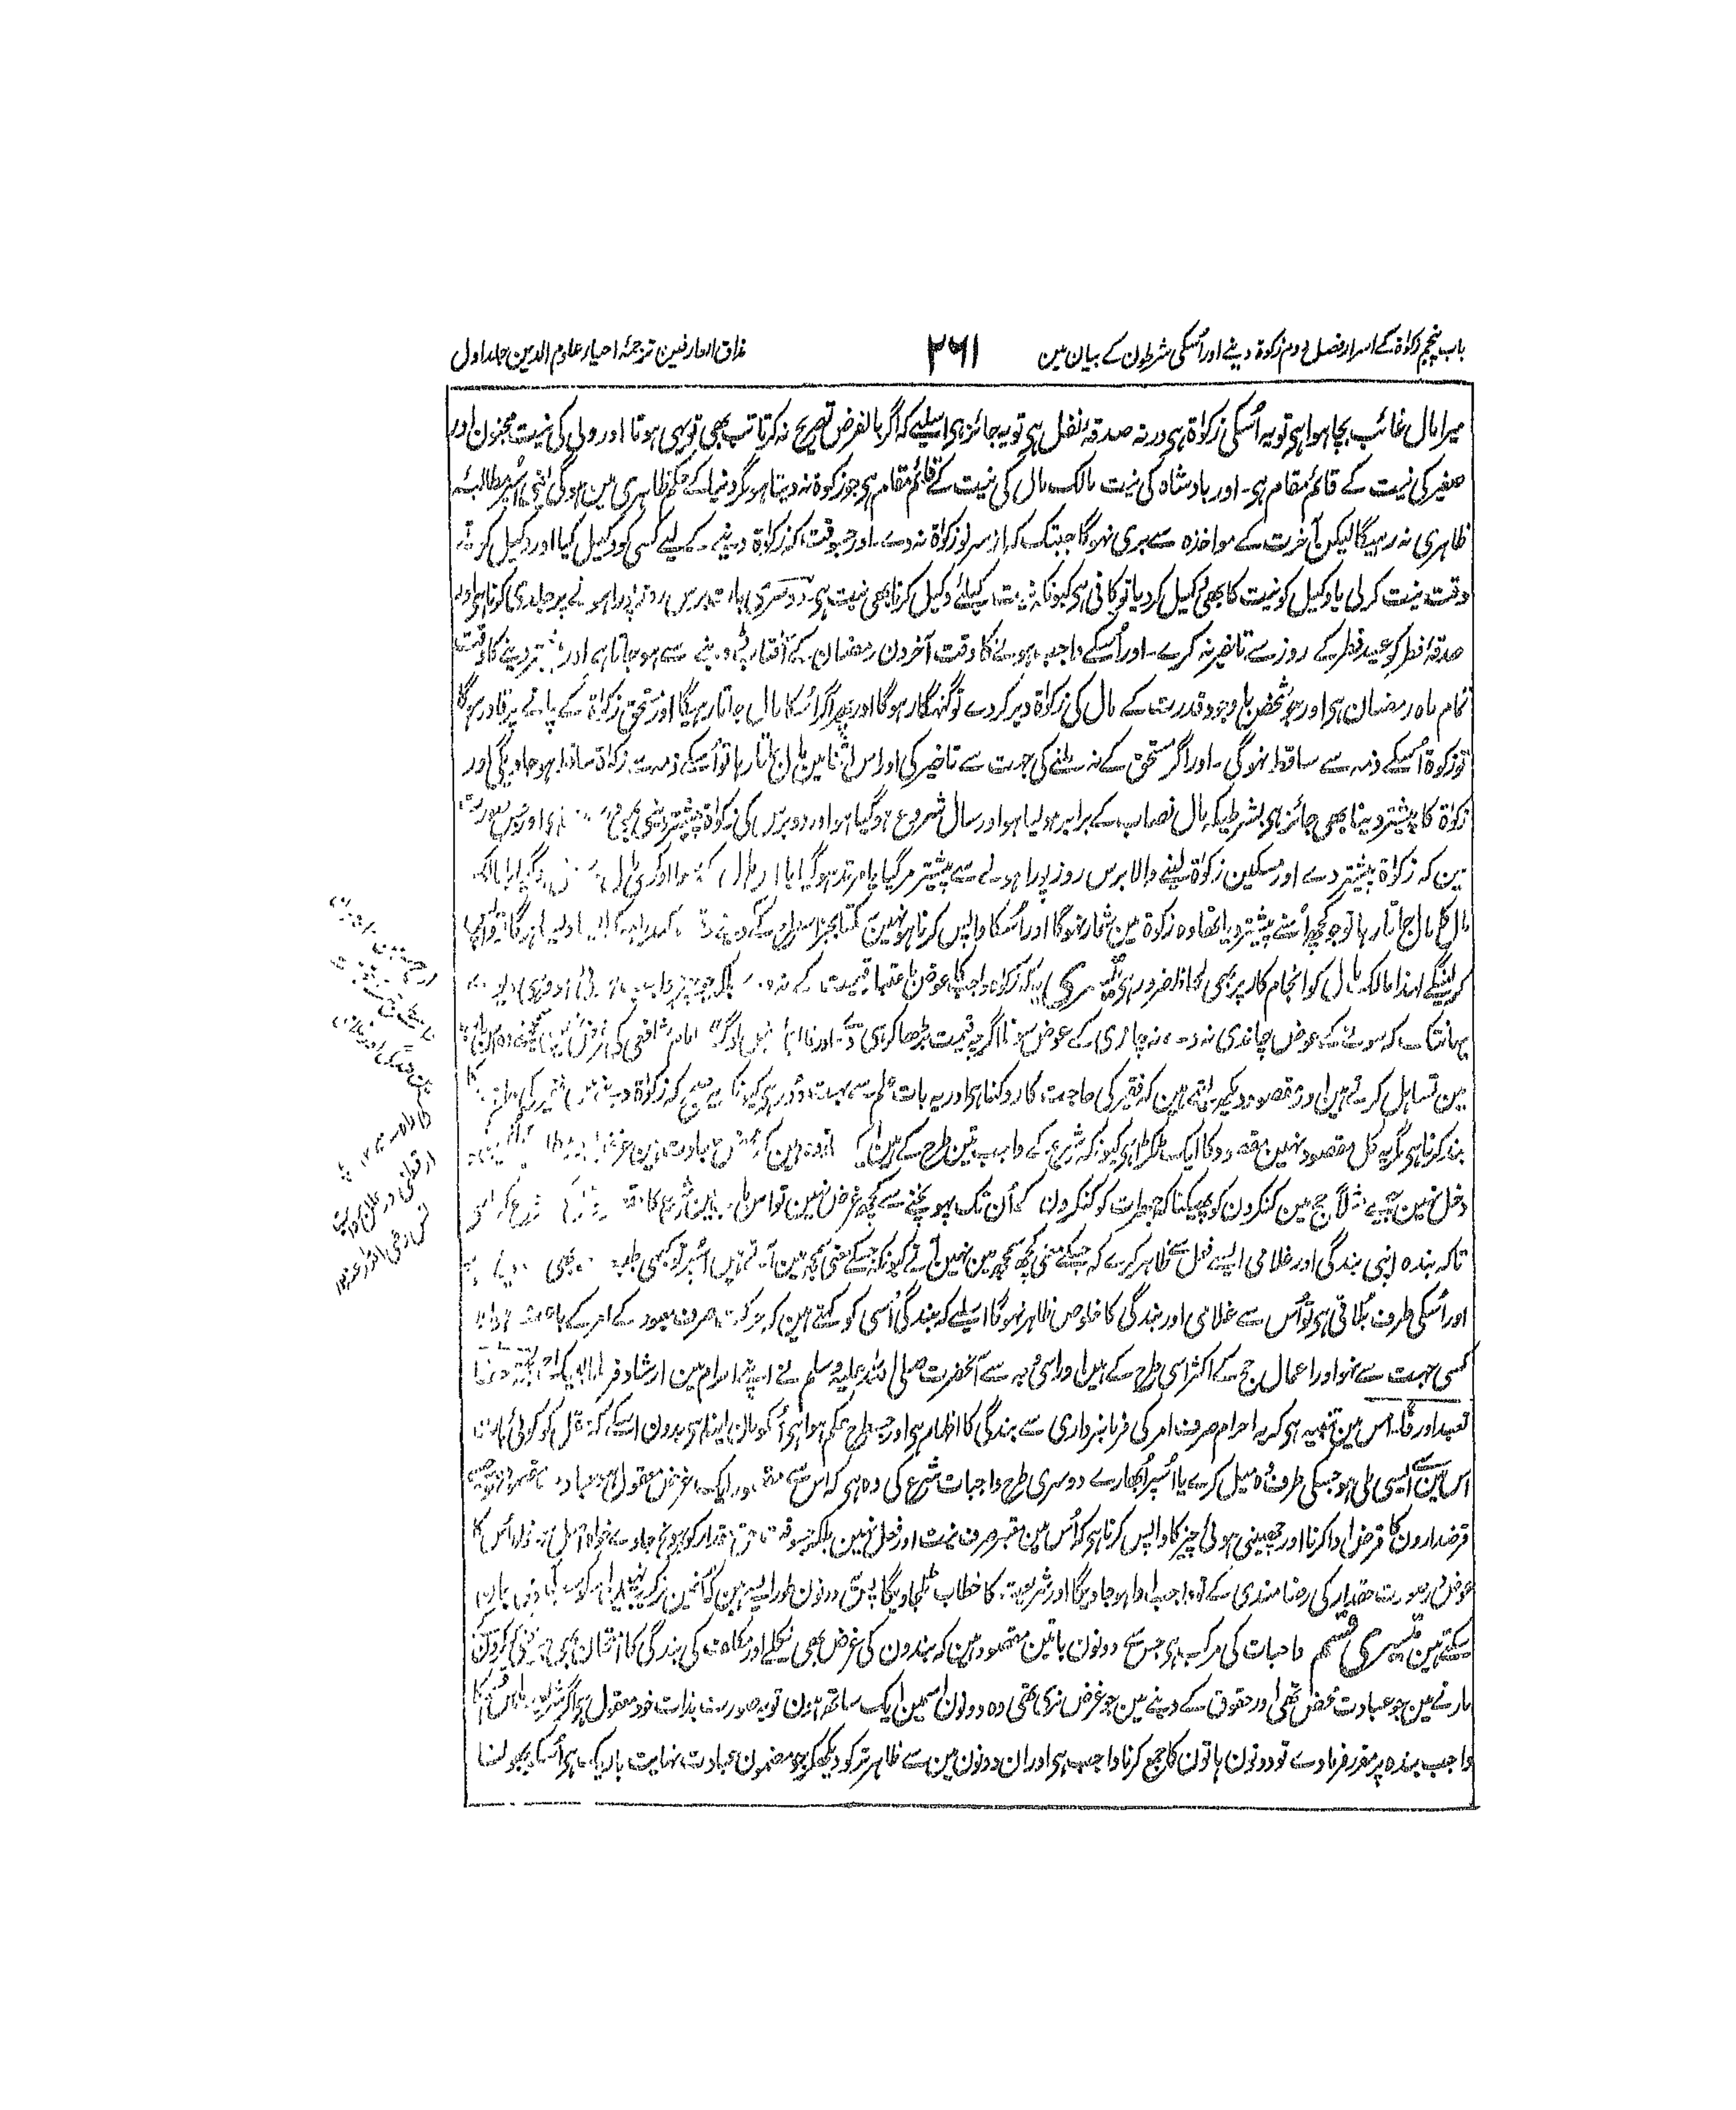 باب پنجم زکوٰۃ کے اسرار فصل دوم زکوٰۃ دینے اور اُسکی شرطون کے بیان مین
۲۶۱
مذاق العارفین ترجمۂ احیاء علوم الدین جلد اول
میرا مال غائب بچا ہوا ہی تو یہ اُسکی زکوٰۃ ہی ورنہ صدقۂ نفل ہی تو یہ جائز ہی اسلیے کہ اگر بالفرض تصریح نہ کرتا تب بھی تو یہی ہوتا اور ولی کی نیت مجنون اور
صغیر کی نیت کے قائم مقام ہی۔ اور بادشاہ کی نیت مالک مال کی نیت کے قائم مقام ہی جو زکوٰۃ نہ دیتا ہو مگر دنیا کے حکم ظاہری مین ہوگی یعنی اُسپر مطالبہ
ظاہری نہ رہیگا لیکن آخرت کے مواخذہ سے بری نہوگا جبتک کہ از سر نو زکوٰۃ نہ دے۔ اور جسوقت کہ زکوٰۃ دینے کے لیے کسی کو وکیل کیا اور وکیل کرتے
وقت نیت کر لی یا وکیل کو نیت کا بھی وکیل کر دیا تو کافی ہی کیونکہ نیت کیلئے وکیل کرنا بھی نیت ہی۔ دوسری بات برس روز پورا ہونے پر جلدی کرنا ہی اور
صدقۂ فطر کو عید فطر کے روز سے تاخیر نہ کرے۔ اور اُسکے واجب ہونے کا وقت آخر دن رمضان کے آفتاب ڈوبنے سے ہو جاتا ہے اور پیشتر دینے کا وقت
تمام ماہ رمضان ہی اور جو شخص باوجود قدرت کے مال کی زکوٰۃ دیر کر دے تو گنہگار ہوگا اور پھر اگر اُسکا مال جاتا رہیگا اور مستحق زکوٰۃ کے پانے پر قادر ہوگا
تو زکوٰۃ اُسکے ذمہ سے ساقط نہوگی۔ اور اگر مستحق کے نہ ملنے کی جہت سے تاخیر کی اور اس اثنا مین مال جاتا رہا تو اُسکے ذمہ سے زکوٰۃ ساقط ہو جاویگی اور
زکوٰۃ کا پیشتر دینا بھی جائز ہی بشرطیکہ مال نصاب کے برابر ہو لیا ہو اور سال شروع ہو گیا ہو اور دو برس کی زکوٰۃ پیشتر دینی بھی ہی اور جس صورت
مین کہ زکوٰۃ پیشتر دے اور مسکین زکوٰۃ لینے والا برس روز پورا ہونے سے پیشتر مر گیا یا مرتد ہو گیا یا مالک
مال کا مال جاتا رہا تو جو کچھ اُسنے پیشتر دیا تھا وہ زکوٰۃ مین شمار نہوگا اور اُسکا واپس کرنا ہو نہین سکتا بجز
کر لینگے لہذا مالک مال کو انجام کار پر بھی لحاظ ضرور ہی تیسری یہ کہ زکوٰۃ واجب کا عوض باعتبار قیمت کے نہ دے بلکہ جو چیز واجب
یہانتک کہ سونے کے عوض چاندی نہ دے نہ چاندی کے عوض سونا اگرچہ قیمت بڑھا کر ہی دے اور غالباً بعض لوگ امام شافعی کی غرض نہین سمجھتے وہ اس بات
مین تساہل کرتے ہین اور مقصود دیکھ لیتے ہین کہ فقیر کی حاجت کا روکنا ہی اور یہ بات علم سے بہت دور ہی کیونکہ یہ صحیح کہ زکوٰۃ دینے
بند کرنا ہی مگر یہ کل مقصود نہین مقصود کا ایک ٹکڑا ہی کیونکہ شرع کے واجب تین طرح کے ہین
دخل نہین جیسے مثلاً حج مین کنکرون کو پھینکنا کہ جمرات کو کنکرون کے اُن تک پہونچنے سے کچھ غرض نہین تو اس
تاکہ بندہ اپنی بندگی اور غلامی ایسے فعل سے ظاہر کرے کہ جسکے معنی کچھ سمجھ مین نہین آتے کیونکہ جسکے معنی سمجھ مین آتے ہین اُسپر تو کبھی طبیعت
اور اُسکی طرف بُلاتی ہی تو اُس سے غلامی اور بندگی کا خلوص ظاہر نہوگا اسلیے کہ بندگی اُسی کو کہتے ہین کہ حرکت صرف معبود کے امر کے باعث ہو اور
کسی جہت سے نہو اور اعمال حج کے اکثر اسی طرح کے ہین اور اسی وجہ سے آنحضرت صلی اللہ علیہ وسلم نے اپنے احرام مین ارشاد فرمایا لبیک بحجۃ حقا
تعبدا ورقا۔ اس مین تنبیہ ہی کہ یہ احرام صرف امر کی فرمانبرداری سے بندگی کا اظہار ہی اور جسطرح حکم ہوا ہی اُسکو مان لینا ہی بدون اسکے کہ عقل کو کوئی بات
اس مین سے ایسی ملی ہو جسکی طرف وہ میل کرے یا اُسپر اُبھارے دوسری طرح واجبات شرع کی وہ ہی کہ اس سے مقصود ایک غرض معقول ہو عبادت مقصود نہو جیسے
قرضدارون کا قرض ادا کرنا اور چھینی ہوئی چیز کا واپس کرنا ہی کہ اُس مین معتبر صرف نیت اور فعل نہین بلکہ جسوقت حق حقدار کو پہونچ جاوے خواہ اصل ہو خواہ اُس کا
عوض بصورت حقدار کی رضامندی کے تو واجب ادا ہو جاویگا اور شریعت کا خطاب ٹلجاویگا پس یہ دونون طور ایسے ہین کہ اُنمین ترکیب نہین
سکتے ہین تیسری قسم واجبات کی مرکب ہی جس سے دونون باتین مقصود ہین کہ بندون کی غرض بھی نکلے اور مکلف کی بندگی کا امتحان بھی ہو یعنی کنکرون کے
مارنے مین جو عبادت محض تھی اور حقوق کے دینے مین جو غرض نری تھی وہ دونون اسمین ایک ساتھ ہون تو یہ صورت بذات خود معقول ہی اگر شریعت اس قسم کا
واجب بندہ پر مقرر فرمادے تو دونون باتون کا جمع کرنا واجب ہی اور ان دونون مین سے ظاہر تر کو دیکھ کر جو مضمون عبادت نہایت باریک ہی اُسکا بھولنا